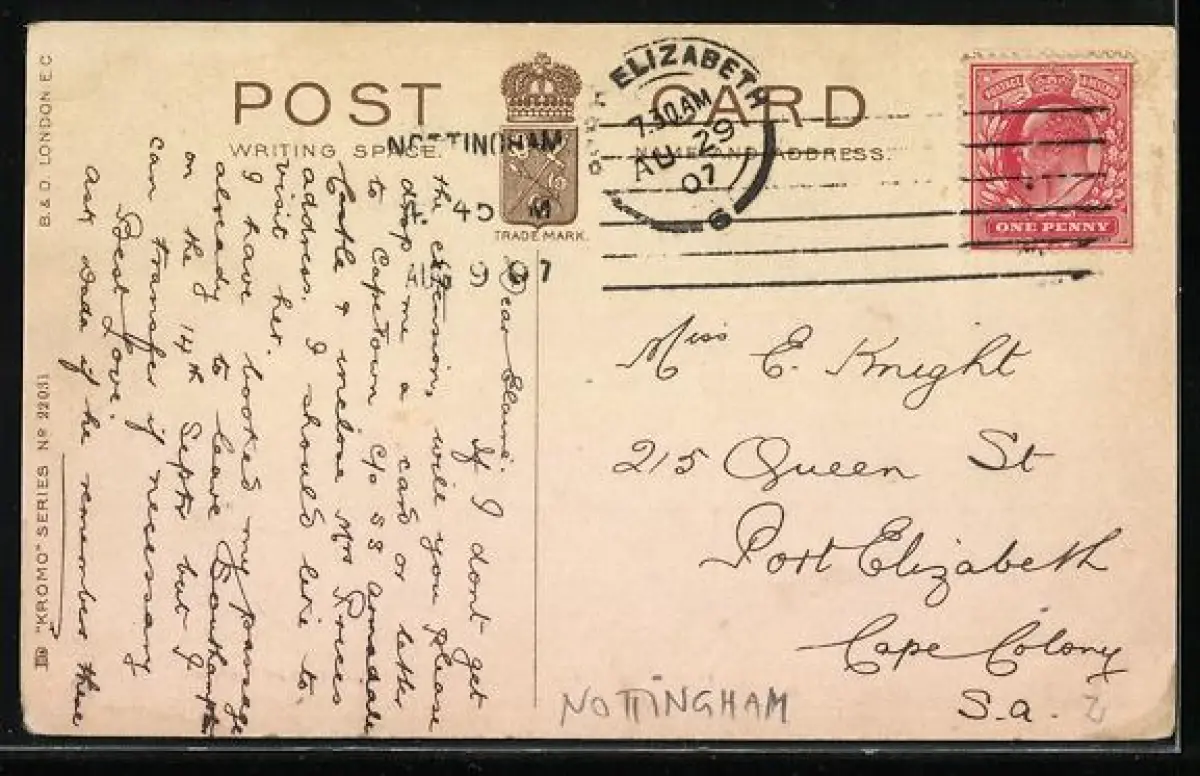 POST CARD
WRITING SPACE.
NAME AND ADDRESS.
TRADE MARK.
B. & D. LONDON E.C.
"KROMO" SERIES No 22031
NOTTINGHAM
ELIZABETH
7.30 AM
AU 29
07
6
POSTAGE
ONE PENNY
Dear Elaine.
If I dont get
the extension, will you please
drop me a card or letter
to Capetown C/o SS Armadale
Castle & inclose Mrs Prices
address. I should like to
visit her.
I have booked my passage
already to leave Southampton
on the 14th Septr but I
can transfer if necessary
Best Love.
Ask Dada if he remembers these
Miss E. Knight
215 Queen St
Port Elizabeth
Cape Colony
S.a.
NOTTINGHAM